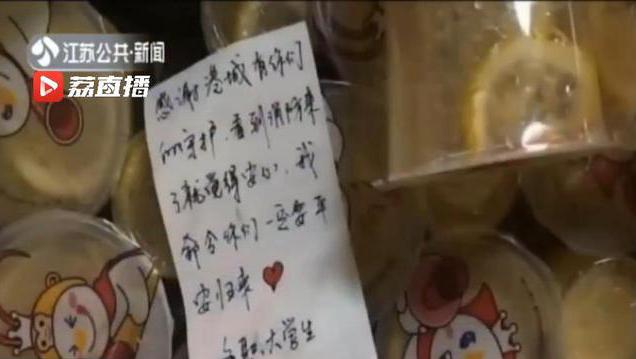 江苏公共·新闻
荔直播
感谢港城有你们
的守护，看到消防来
了就觉得安心，我
们一定要平
安归来
大学生